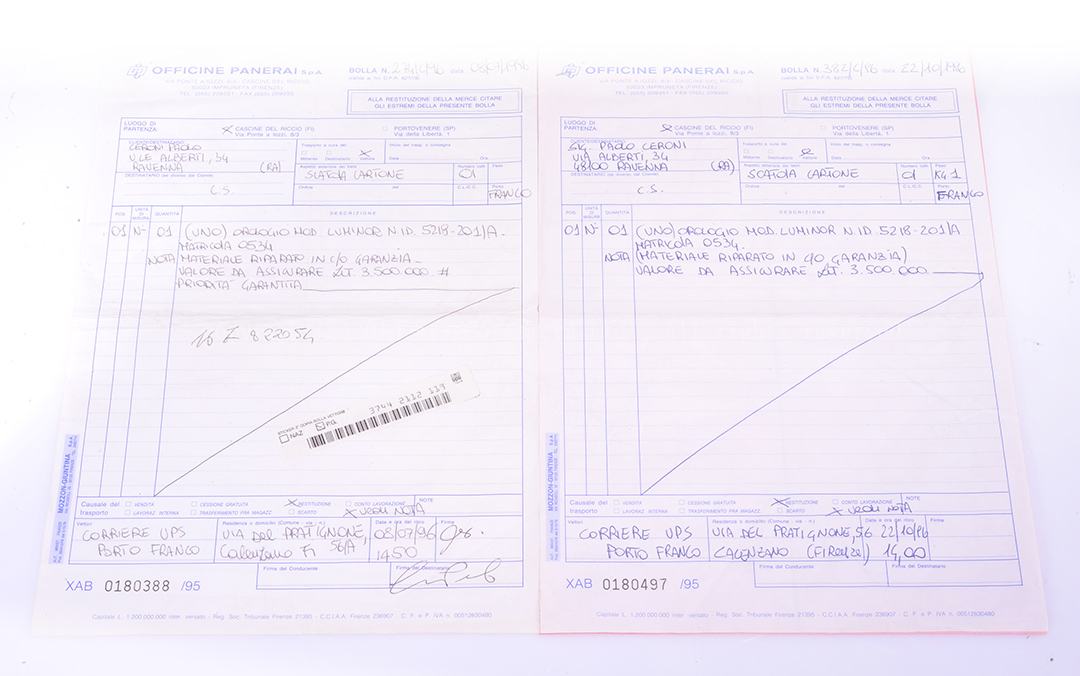 OFFICINE PANERAI S.p.A.
VIA PONTE A IOZZI, 8/3 - CASCINE DEL RICCIO
50023 IMPRUNETA (FIRENZE)
BOLLA N. data 08/07/1996
ALLA RESTITUZIONE DELLA MERCE CITARE
GLI ESTREMI DELLA PRESENTE BOLLA
LUOGO DI
PARTENZA
CASCINE DEL RICCIO (FI)
Via Ponte a Iozzi, 8/3
PORTOVENERE (SP)
Via della Libertà, 1
CERONI PAOLO
V.LE ALBERTI, 34
RAVENNA (RA)
Mittente Destinatario Vettore
Data Ora
SCATOLA CARTONE 01
C.S.
FRANCO
POS. UNITÀ DI MISURA QUANTITÀ DESCRIZIONE
01 N° 01 (UNO) OROLOGIO MOD. LUMINOR N. ID. 5218-201/A
MATRICOLA 0534
NOTA MATERIALE RIPARATO IN C/O GARANZIA
VALORE DA ASSICURARE £IT. 3.500.000 #
PRIORITÀ GARANTITA
16 Z 822054
3744 2112 119
NAZ
MOZZON-GIUNTINA S.p.A.
Causale del trasporto
VENDITA CESSIONE GRATUITA RESTITUZIONE CONTO LAVORAZIONE NOTE
LAVORAZ. INTERNA TRASFERIMENTO FRA MAGAZZ. SCARTO VEDI NOTA
Vettori Residenza o domicilio (Comune - via - n.) Data e ora del ritiro Firma
CORRIERE UPS VIA DEL PRATIGNONE, 08/07/96
PORTO FRANCO Calenzano Fi 56/A 14 50
Firma del Conducente Firma del Destinatario
XAB 0180388 /95
Capitale L. 1.200.000.000 inter. versato - Reg. Soc. Tribunale Firenze 21395 - C.C.I.A.A. Firenze 236907 - C. F. e P. IVA n. 00512630480
OFFICINE PANERAI S.p.A.
VIA PONTE A IOZZI, 8/3 - CASCINE DEL RICCIO
50023 IMPRUNETA (FIRENZE)
BOLLA N. 382/C/96 data 22/10/1996
ALLA RESTITUZIONE DELLA MERCE CITARE
GLI ESTREMI DELLA PRESENTE BOLLA
LUOGO DI
PARTENZA
CASCINE DEL RICCIO (FI)
Via Ponte a Iozzi, 8/3
PORTOVENERE (SP)
Via della Libertà, 1
SIG. PAOLO CERONI
VIA ALBERTI, 34
48100 RAVENNA (RA)
Mittente Destinatario Vettore
Data Ora
SCATOLA CARTONE 01 KG 1
C.S.
FRANCO
POS. UNITÀ DI MISURA QUANTITÀ DESCRIZIONE
01 N° 01 (UNO) OROLOGIO MOD. LUMINOR N. ID. 5218-201/A
MATRICOLA 0534.
NOTA (MATERIALE RIPARATO IN C/O GARANZIA)
VALORE DA ASSICURARE £IT. 3.500.000
MOZZON-GIUNTINA S.p.A.
Causale del trasporto
VENDITA CESSIONE GRATUITA RESTITUZIONE CONTO LAVORAZIONE NOTE
LAVORAZ. INTERNA TRASFERIMENTO FRA MAGAZZ. SCARTO VEDI NOTA
Vettori Residenza o domicilio (Comune - via - n.) Data e ora del ritiro Firma
CORRIERE UPS VIA DEL PRATIGNONE, 56 22/10/96
PORTO FRANCO CALENZANO (FIRENZE) 14,00
Firma del Conducente Firma del Destinatario
XAB 0180497 /95
Capitale L. 1.200.000.000 inter. versato - Reg. Soc. Tribunale Firenze 21395 - C.C.I.A.A. Firenze 236907 - C. F. e P. IVA n. 00512630480